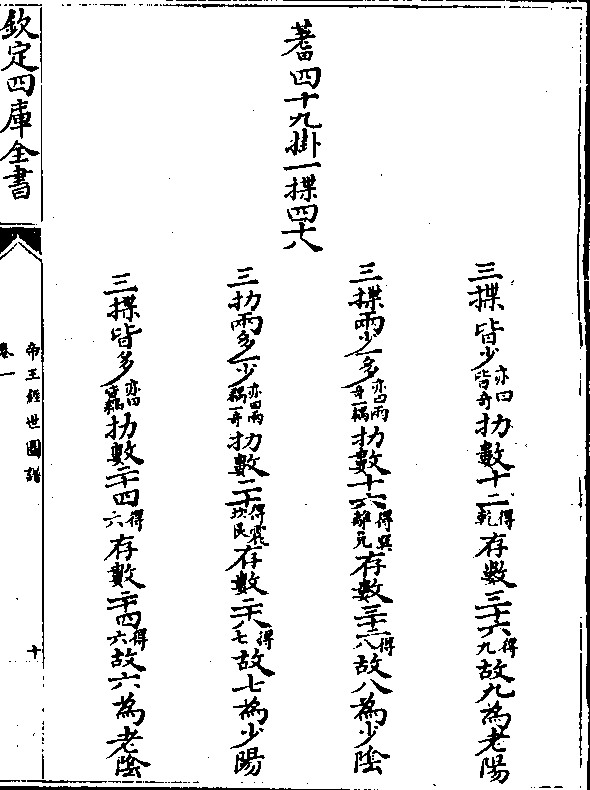 蓍四十九掛一揲四十八
三揲皆少亦曰皆奇扐數十二得乾存數三十六得九故九為老陽
三揲兩少一多亦曰兩奇一耦扐數十六得巽離兌存數三十二得八故八為少陰
三扐兩多一少亦曰兩耦一奇扐數二十得震坎艮存數二十八得七故七為少陽
三揲皆多亦曰皆耦扐數二十四得六存數二十四得六故六為老陰
欽定四庫全書
帝王經世圖譜
卷一
十